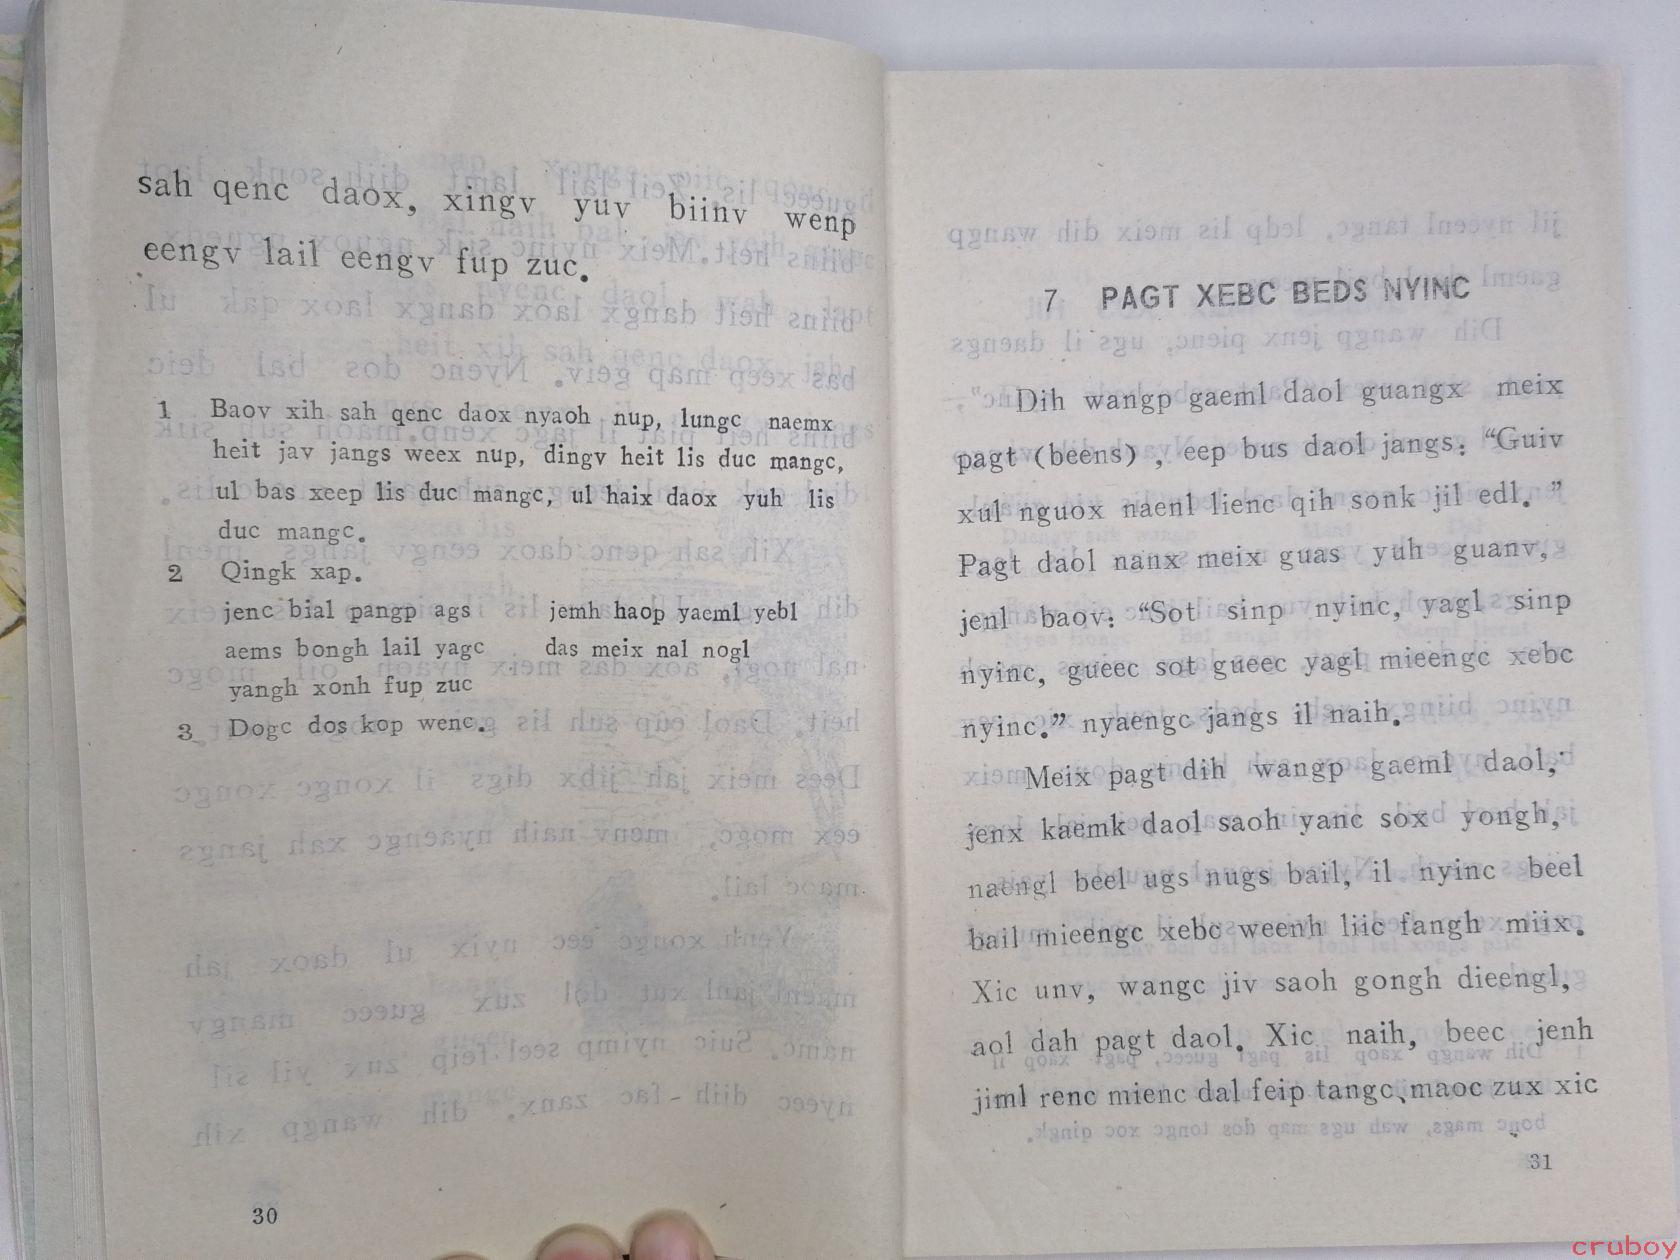 sah qenc daox, xingv yuv biinv wenp
eengv lail eengv fup zuc.
1 Baov xih sah qenc daox nyaoh nup, lungc naemx
heit jav jangs weex nup, dingv heit lis duc mangc,
ul bas xeep lis duc mangc, ul haix daox yuh lis
duc mangc.
2 Qingk xap.
jenc bial pangp ags jemh haop yaeml yebl
aems bongh lail yagc das meix nal nogl
yangh xonh fup zuc
3 Dogc dos kop wenc.
30
7 PAGT XEBC BEDS NYINC
Dih wangp gaeml daol guangx meix
pagt (beens) , eep bus daol jangs: “Guiv
xul nguox naenl lienc qih sonk jil edl.”
Pagt daol nanx meix guas yuh guanv,
jenl baov: “Sot sinp nyinc, yagl sinp
nyinc, gueec sot gueec yagl mieengc xebc
nyinc.” nyaengc jangs il naih.
Meix pagt dih wangp gaeml daol,
jenx kaemk daol saoh yanc sox yongh,
naengl beel ugs nugs bail, il nyinc beel
bail mieengc xebc weenh liic fangh miix.
Xic unv, wangc jiv saoh gongh dieengl,
aol dah pagt daol. Xic naih, beec jenh
jiml renc mienc dal feip tangc, maoc zux xic
31
cruboy